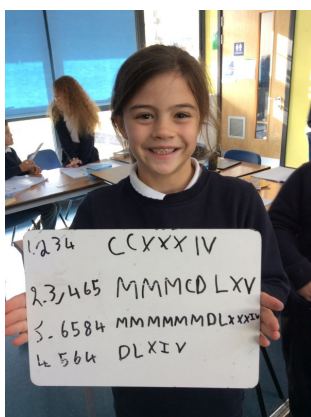 1.234 CCXXXIV
2.3,465 MMMCDLXV
3. 6584 MMMMMMDLXXXIV
4. 564 DLXIV